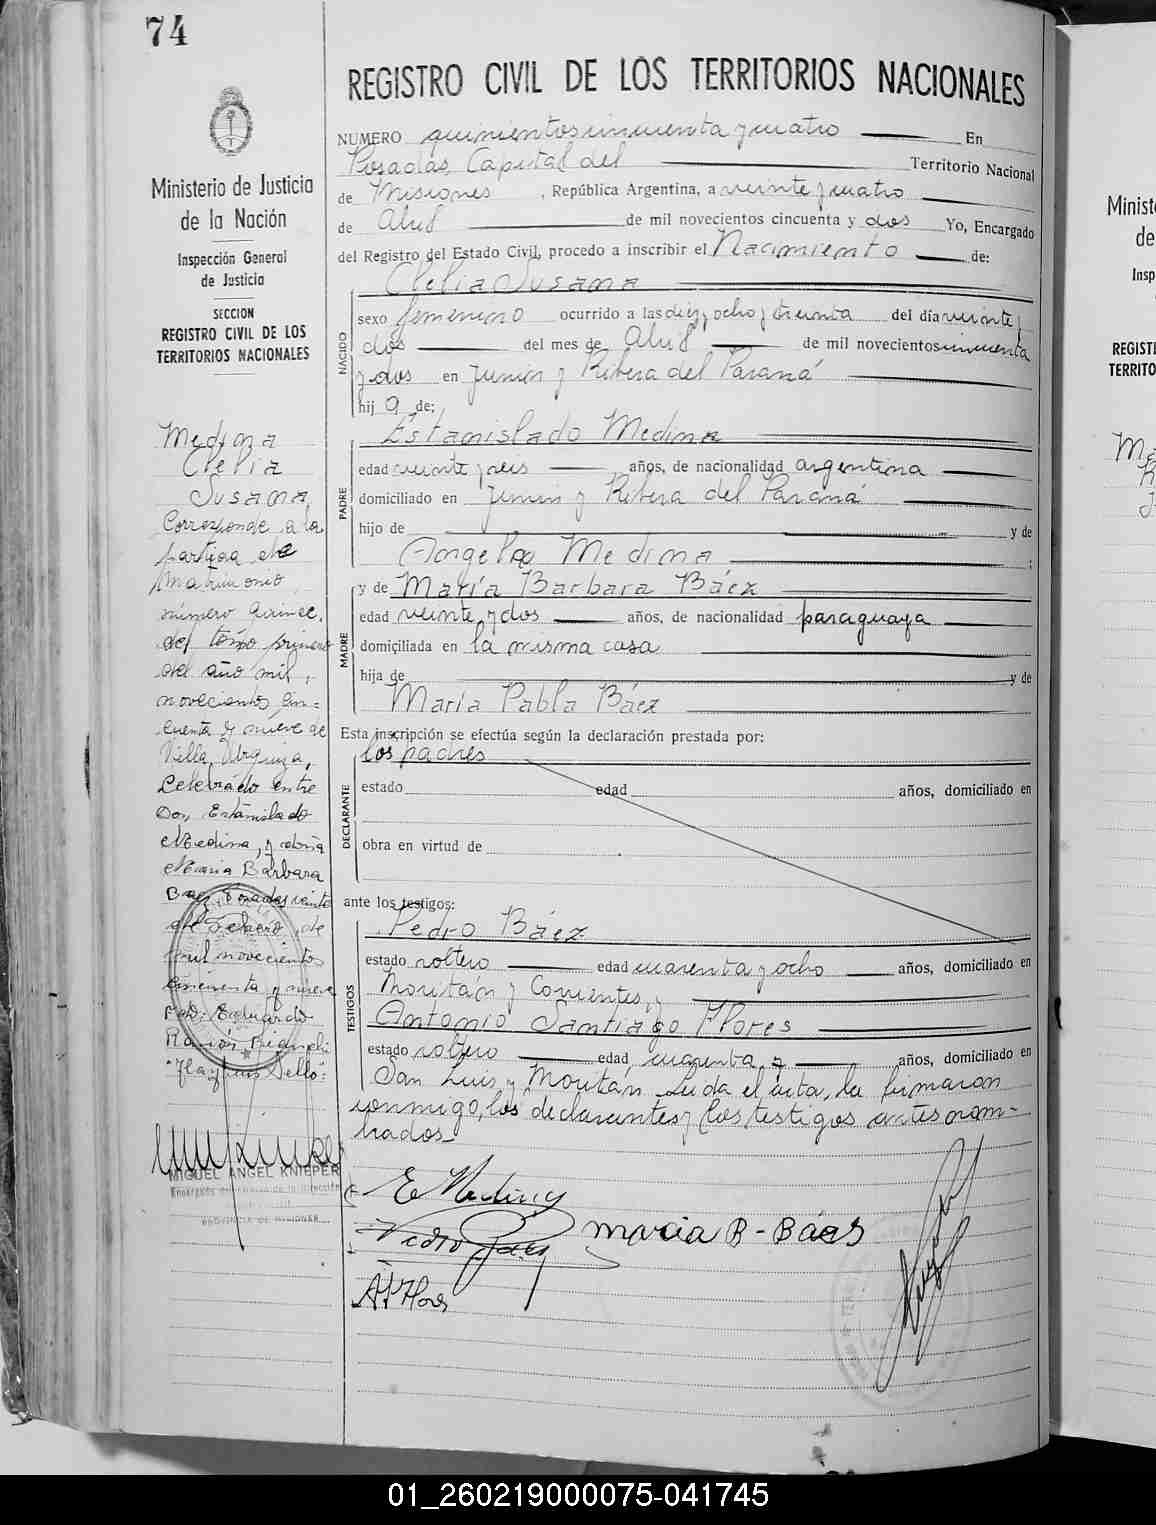 74
Ministerio de Justicia
de la Nación
Inspección General
de Justicia
SECCION
REGISTRO CIVIL DE LOS
TERRITORIOS NACIONALES
Medina
Clelia
Susana
Corresponde a la
partida de
matrimonio
número quince,
del tomo primero
del año mil,
novecientos cin=
cuenta y nueve de
Villa Urquiza,
Celebrado entre
Don, Estanislado
Medina, y doña
Maria Barbara
Baez Posadas veinte
de Febrero, de
mil novecientos
cincuenta y nueve
Fdo: Eduardo
Ramón
"Hay un Sello".
MIGUEL ANGEL KNIEPER
PROVINCIA DE MISIONES
REGISTRO CIVIL DE LOS TERRITORIOS NACIONALES
NUMERO quinientos cincuenta y cuatro En
Posadas, Capital del Territorio Nacional
de Misiones, República Argentina, a veinte y cuatro
de Abril de mil novecientos cincuenta y dos Yo, Encargado
del Registro del Estado Civil, procedo a inscribir el Nacimiento de:
Clelia Susana
NACIDO
sexo femenino ocurrido a las diez y ocho y treinta del día veinte y
dos del mes de Abril de mil novecientos cincuenta
y dos en Junin y Ribera del Paraná
hij a de:
PADRE
Estanislado Medina
edad veinte y seis años, de nacionalidad argentina
domiciliado en Junin y Ribera del Paraná
hijo de y de
Angela Medina ;
MADRE
y de María Barbara Báez
edad veinte y dos años, de nacionalidad paraguaya
domiciliada en la misma casa
hija de y de
María Pabla Báez
Esta inscripción se efectúa según la declaración prestada por:
los padres
DECLARANTE
estado edad años, domiciliado en
obra en virtud de
ante los testigos:
TESTIGOS
Pedro Báez
estado soltero edad cuarenta y ocho años, domiciliado en
Moritan y Corrientes, y
Antonio Santiago Flores
estado soltero edad cuarenta y años, domiciliado en
San Luis y Moritan. Leida el acta, la firmaron
conmigo, los declarantes y los testigos antes nom-
brados
E Medina
Pedro Baez maria B - Báes
A S Flores
Minist
de
Insp
REGIST
TERRITO
01_260219000075-041745